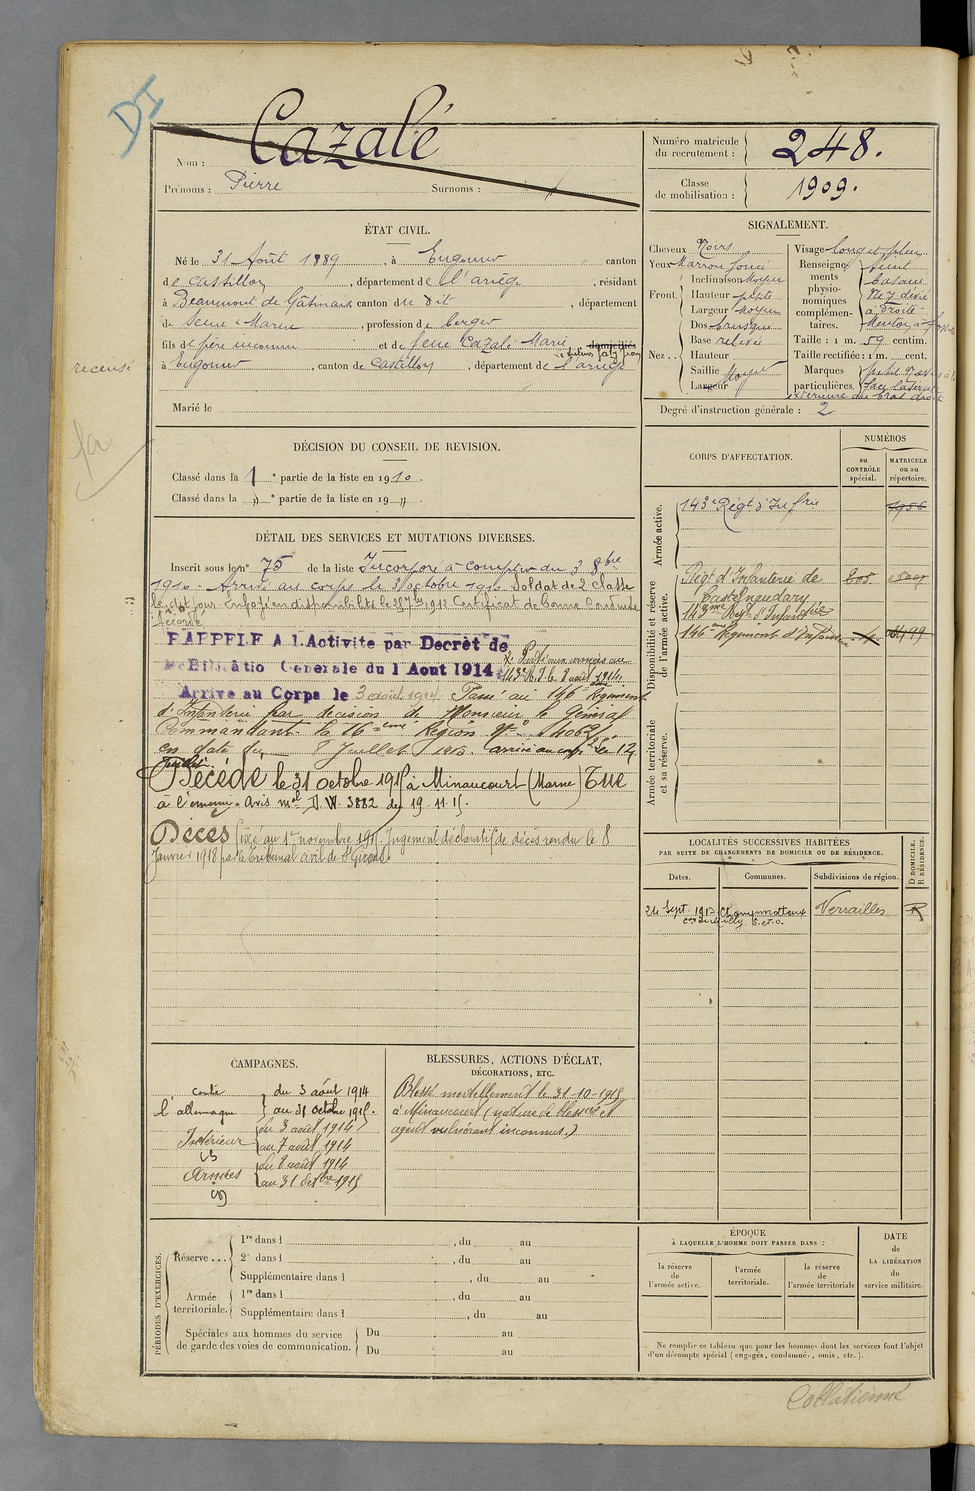 DI
Nom : Cazalé
Prénoms : Pierre Surnoms :
Numéro matricule du recrutement : 248.
Classe de mobilisation : 1909.
ÉTAT CIVIL.
Né le 31 Août 1889, à Eugomer canton
de Castillon, département de l'ariège, résidant
à Beaumont de Gâtinais canton du Dit, département
de Seine & Marne, profession de berger
fils de père inconnu et de feue Cazalé Marie domiciliés
à Eugomer, canton de Castillon, département de l'ariège
Marié le
recensé
SIGNALEMENT.
Cheveux Noirs
Yeux Marron foncé
Front. Inclinaison Moyen
Hauteur petite
Largeur Moyen
Nez. Dos busqué
Base relevée
Hauteur
Saillie Moyen
Largeur
Visage long et plein
Renseignements physionomiques complémentaires.
Nez dévié
à droite
Menton à fossette
Taille : 1 m. 59 centim.
Taille rectifiée : 1 m. cent.
Marques particulières.
face latérale
extérieure du bras droit
Degré d'instruction générale : 2
DÉCISION DU CONSEIL DE REVISION.
Classé dans la 1e partie de la liste en 1910.
Classé dans la " e partie de la liste en 19 ".
DÉTAIL DES SERVICES ET MUTATIONS DIVERSES.
Inscrit sous le n° 75 de la liste Incorporé à compter du 3 8bre
1910 - Arrivé au corps le 3 octobre 1910 Soldat de 2 classe
le dit jour. Envoyé en disponibilité le 25 7bre 1912 Certificat de bonne Conduite
Accordé.
RAPPELÉ A l'Activité par Décret de
Mobilisation Générale du 1 Aout 1914.
Parti aux armées au
143e R.I. le 8 août 1914.
Arrivé au Corps le 3 août 1914. Passé au 146e Régiment
d'Infanterie par décision de Monsieur le Général
Commandant la 16ème Région
en date du 8 Juillet 1915 arrivé au corps le 12
Juillet.
Décédé le 31 octobre 1915 à Minaucourt (Marne) Tué
à l'ennemi. Avis mel D.W. 3882 du 19-11-15.
Décès fixé au 1er novembre 1915. Jugement déclaratif de décès rendu le 8
Janvier 1918 par le Tribunal civil de St Girons
CORPS D'AFFECTATION.
NUMÉROS
au CONTRÔLE spécial.
MATRICULE ou au répertoire.
Armée active.
143e Régt d'Infrie 1956
Disponibilité et réserve de l'armée active.
Régt d'Infanterie de Castelnaudary
143ème Régt d'Infantie
146ème Régiment d'Infanterie
Armée territoriale et sa réserve.
LOCALITÉS SUCCESSIVES HABITÉES
PAR SUITE DE CHANGEMENTS DE DOMICILE OU DE RÉSIDENCE.
Dates. Communes. Subdivisions de région. D DOMICILE. R RÉSIDENCE.
24 Sept. 1913 Champmotteux Versailles R
con de Milly S.et.O.
CAMPAGNES.
contre l'allemagne du 3 août 1914
au 31 octobre 1915.
Intérieur du 3 août 1914
au 7 août 1914
Armées du 8 août 1914
au 31 octbre 1915
BLESSURES, ACTIONS D'ÉCLAT,
DÉCORATIONS, ETC.
Blessé mortellement le 31-10-1915
à Minaucourt (nature de blessure et
agent vulnérant inconnus.)
PÉRIODES D'EXERCICES.
Réserve ... 1re dans l , du au
2e dans l , du au
Supplémentaire dans l , du au
Armée territoriale. 1re dans l , du au
Supplémentaire dans l , du au
Spéciales aux hommes du service de garde des voies de communication. Du au
Du au
ÉPOQUE
À LAQUELLE L'HOMME DOIT PASSER DANS :
la réserve de l'armée active.
l'armée territoriale.
la réserve de l'armée territoriale
DATE de LA LIBÉRATION du service militaire.
Ne remplir ce tableau que pour les hommes dont les services font l'objet
d'un décompte spécial (engagés, condamnés, omis, etc.).
Collationné